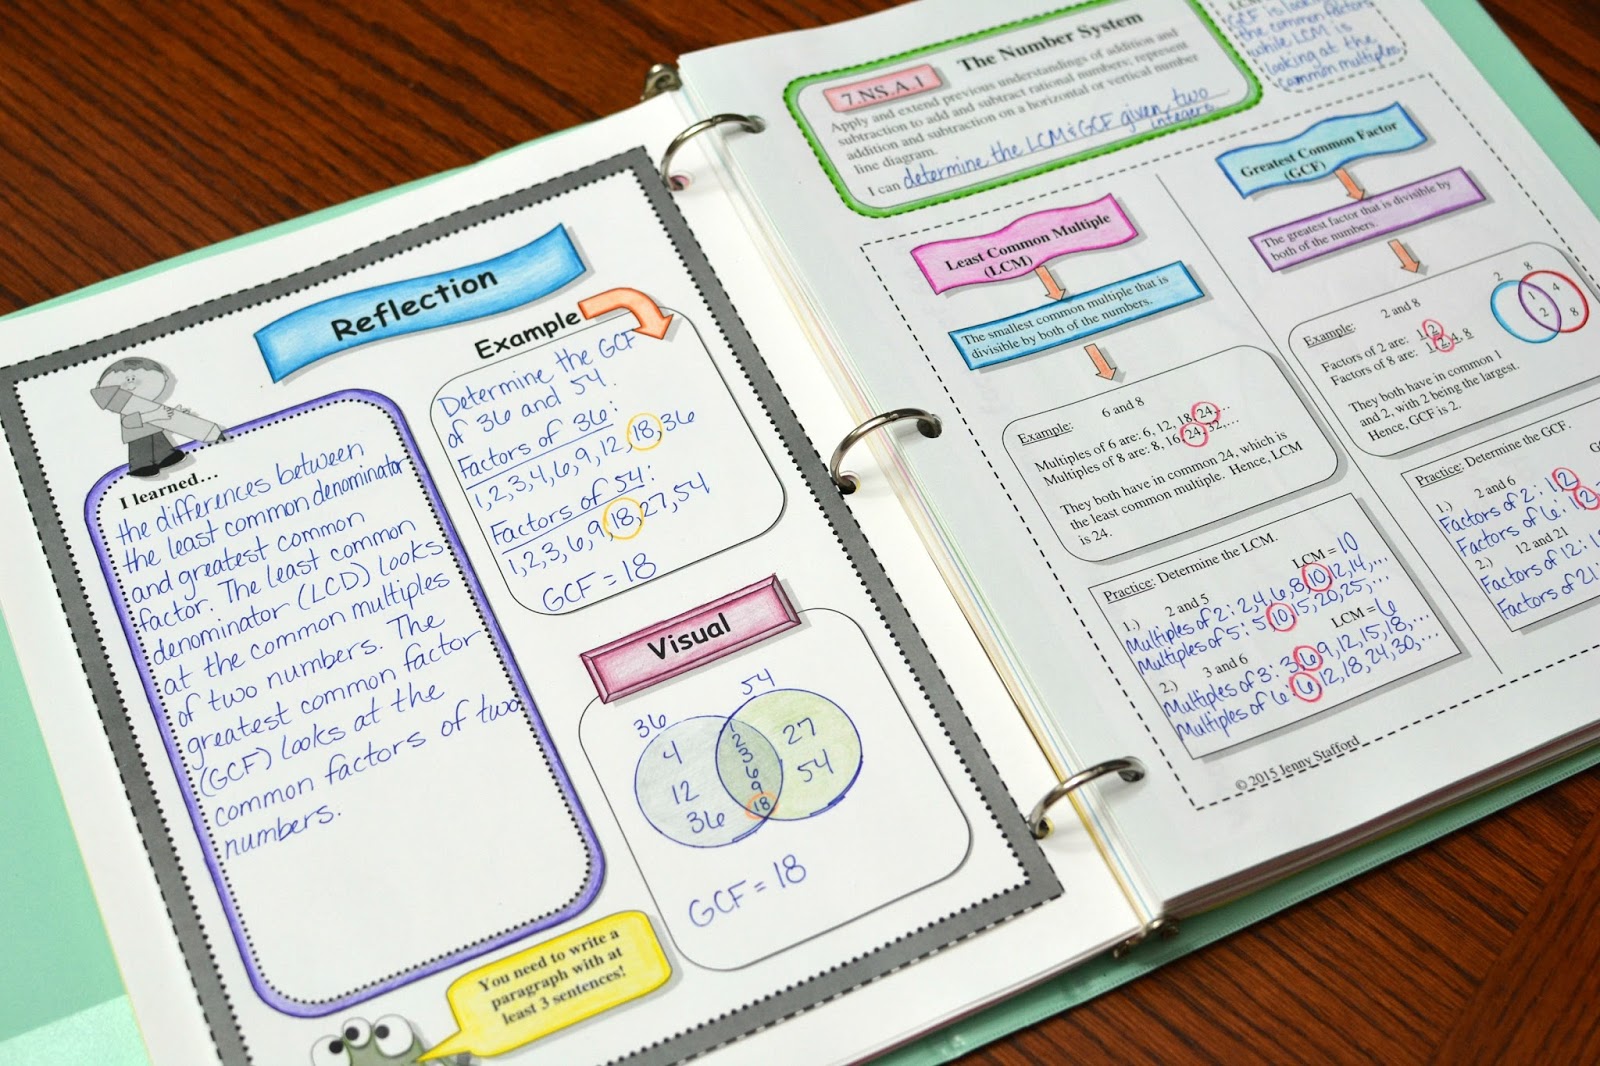 Reflection
I learned...
the differences between
the least common denominator
and greatest common
factor. The least common
denominator (LCD) looks
at the common multiples
of two numbers. The
greatest common factor
(GCF) looks at the
common factors of two
numbers.
Example
Determine the GCF
of 36 and 54.
Factors of 36:
1,2,3,4,6,9,12,18,36
Factors of 54:
1,2,3,6,9,18,27,54
GCF = 18
Visual
36
54
4
12
36
1
2
3
6
9
18
27
54
GCF = 18
You need to write a
paragraph with at
least 3 sentences!
7.NS.A.1
The Number System
Apply and extend previous understandings of addition and
subtraction to add and subtract rational numbers; represent
addition and subtraction on a horizontal or vertical number
line diagram.
I can determine the LCM & GCF given two
integers.
GCF is looking
the common factors
while LCM is
looking at the
common multiples
Least Common Multiple
(LCM)
The smallest common multiple that is
divisible by both of the numbers.
Example: 6 and 8
Multiples of 6 are: 6, 12, 18, 24,...
Multiples of 8 are: 8, 16, 24, 32,...
They both have in common 24, which is
the least common multiple. Hence, LCM
is 24.
Practice: Determine the LCM.
1.) 2 and 5 LCM = 10
Multiples of 2: 2,4,6,8,10,12,14,...
Multiples of 5: 5,10,15,20,25,...
2.) 3 and 6 LCM = 6
Multiples of 3: 3,6,9,12,15,18,...
Multiples of 6: 6,12,18,24,30,...
© 2015 Jenny Stafford
Greatest Common Factor
(GCF)
The greatest factor that is divisible by
both of the numbers.
Example: 2 and 8
Factors of 2 are: 1, 2
Factors of 8 are: 1, 2, 4, 8
2
8
1
2
4
8
They both have in common 1
and 2, with 2 being the largest.
Hence, GCF is 2.
Practice: Determine the GCF.
1.) 2 and 6
Factors of 2: 1,2
Factors of 6: 1,2
2.) 12 and 21
Factors of 12:
Factors of 21: